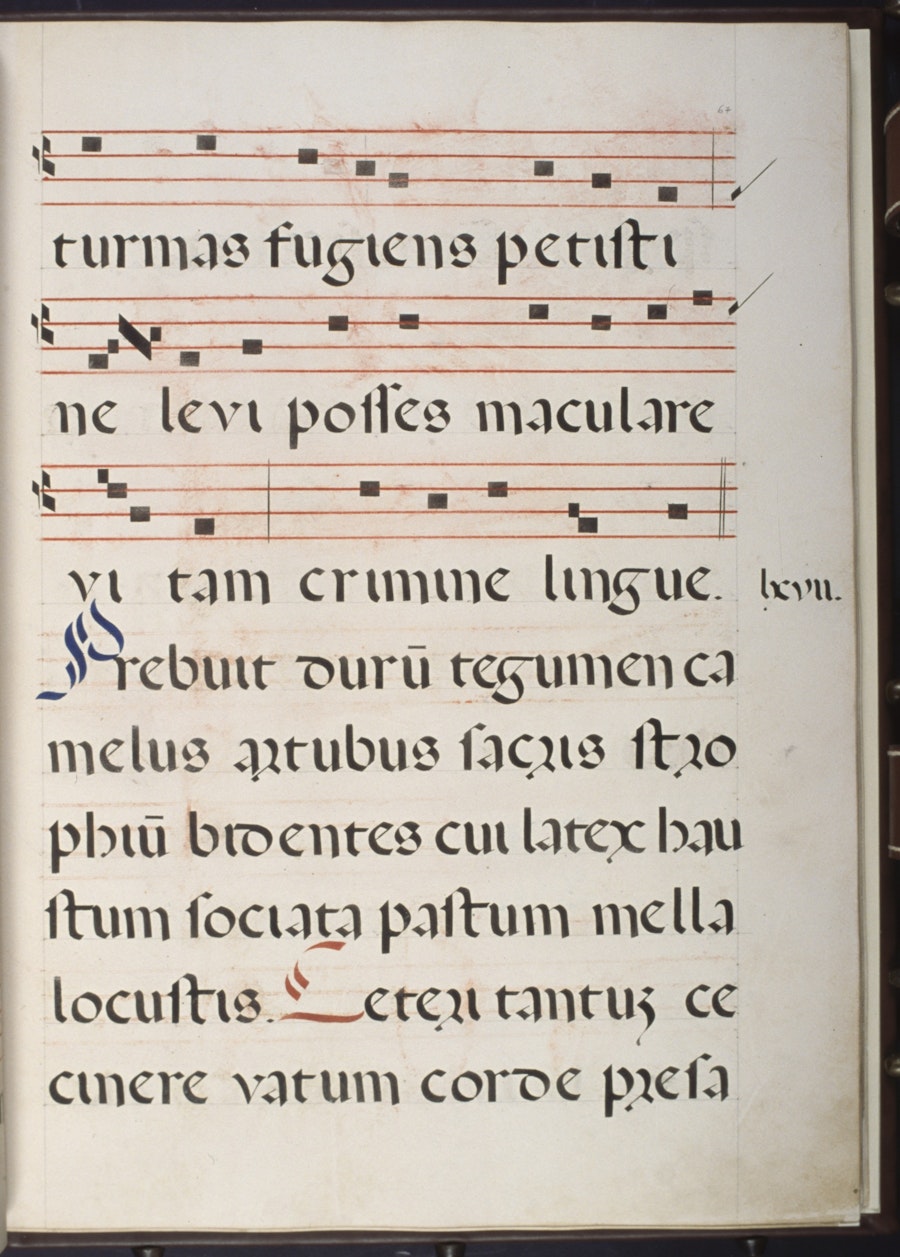 67
turmas fugiens petiſti
ne levi poſſes maculare
vi tam crimine lingue. lxvii.
Prebuit durū tegumen ca
melus artubus ſacris ſtro
phiū bidentes cui latex hau
ſtum ſociata paſtum mella
locuſtis. Ceteri tantuꝫ ce
cinere vatum corde preſa